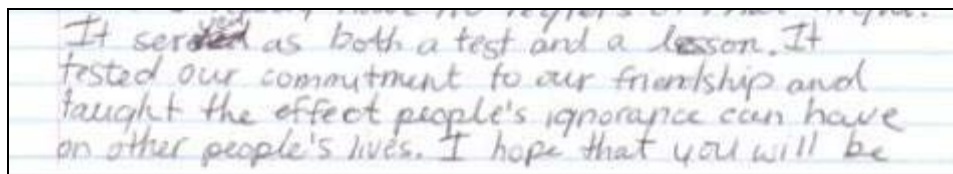 have no regrets of that night.
It served as both a test and a lesson. It
tested our commitment to our friendship and
taught the effect people's ignorance can have
on other people's lives. I hope that you will be